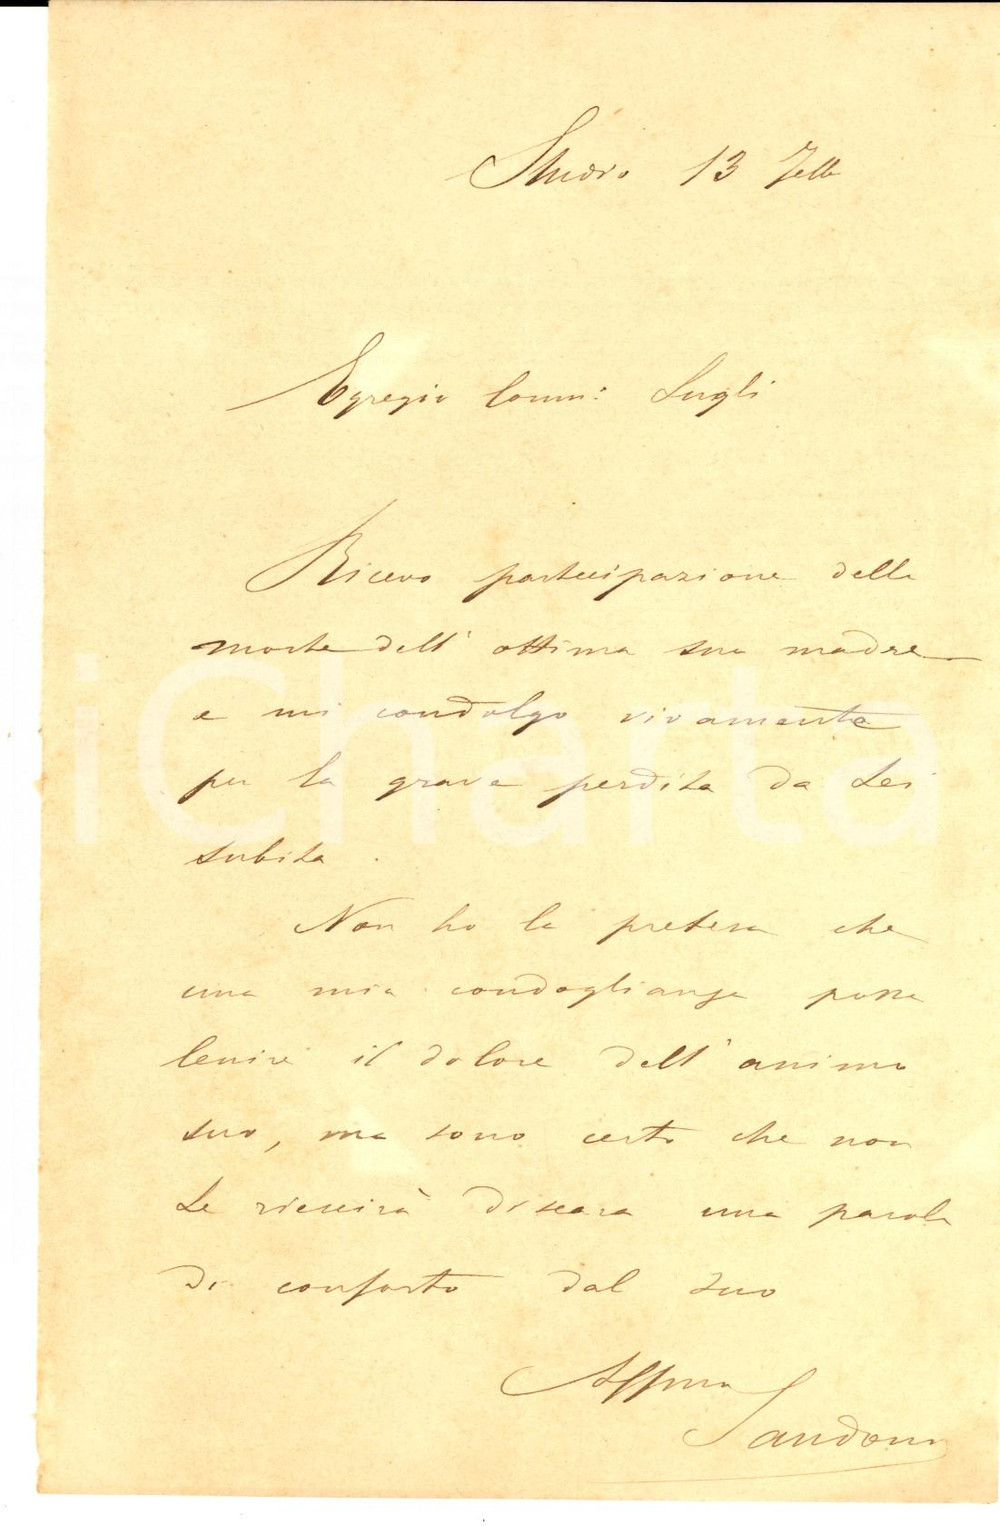 Studio 13 7bb
Egregio Comm: Lugli
Ricevo partecipazione della
morte dell' ottima sua madre
e mi condolgo vivamente
per la grave perdita da Lei
subita.
Non ho la pretesa che
una mia condoglianza possa
lenire il dolore dell' animo
suo, ma sono certo che non
Le riescirà discara una parola
di conforto dal suo
Affmo
Sandoni
iCharta